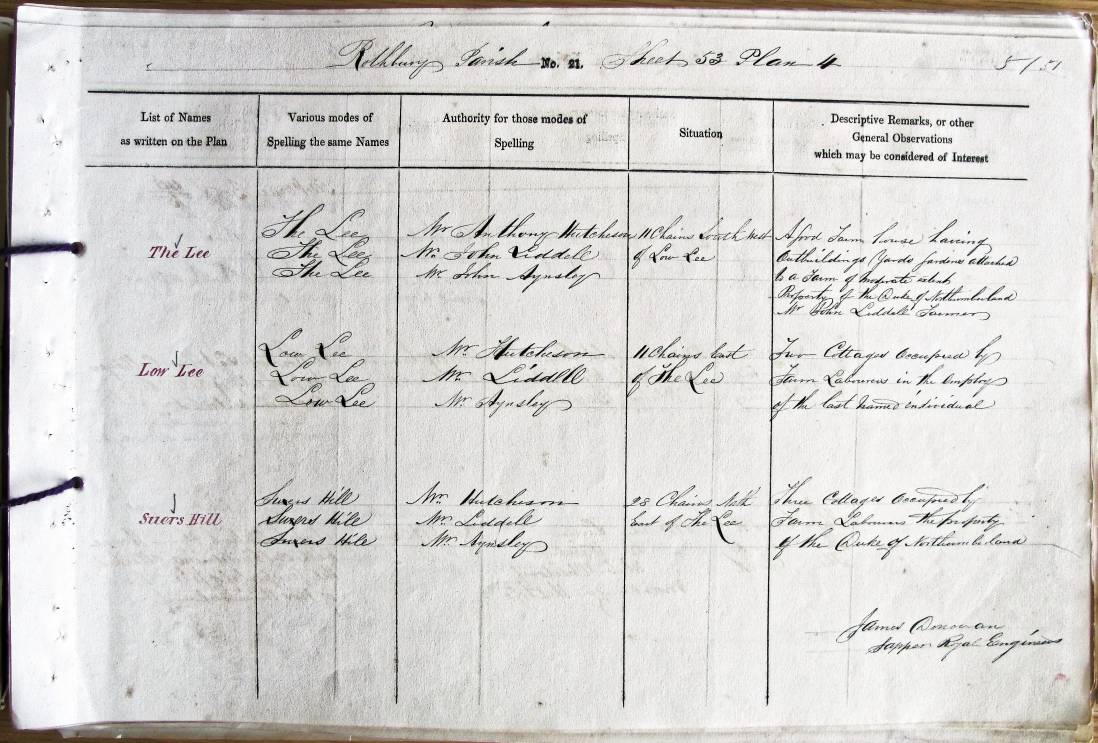 Rothbury Parish No. 21. Sheet 53 Plan 4
51
List of Names
as written on the Plan
Various modes of
Spelling the same Names
Authority for those modes of
Spelling
Situation
Descriptive Remarks, or other
General Observations
which may be considered of Interest
The Lee
The Lee
The Lee
The Lee
Mr Anthony Hutcheson
Mr John Liddell
Mr John Aynsley
11 Chains South West
of Low Lee
A good Farm house having
Outbuildings Yards gardens attached
to a Farm of moderate extent
Property of the Duke of Northumberland
Mr John Liddell Farmer
Low Lee
Low Lee
Low Lee
Low Lee
Mr Hutcheson
Mr Liddell
Mr Aynsley
11 Chains East
of The Lee
Two Cottages Occupied by
Farm Labourers in the employ
of the last named individual
Suers Hill
Hill
Hill
Hill
Mr Hutcheson
Mr Liddell
Mr Aynsley
28 Chains Nth
East of The Lee
Three Cottages Occupied by
Farm Labourers the property
of the Duke of Northumberland
James Donovan
Sapper Royal Engineers